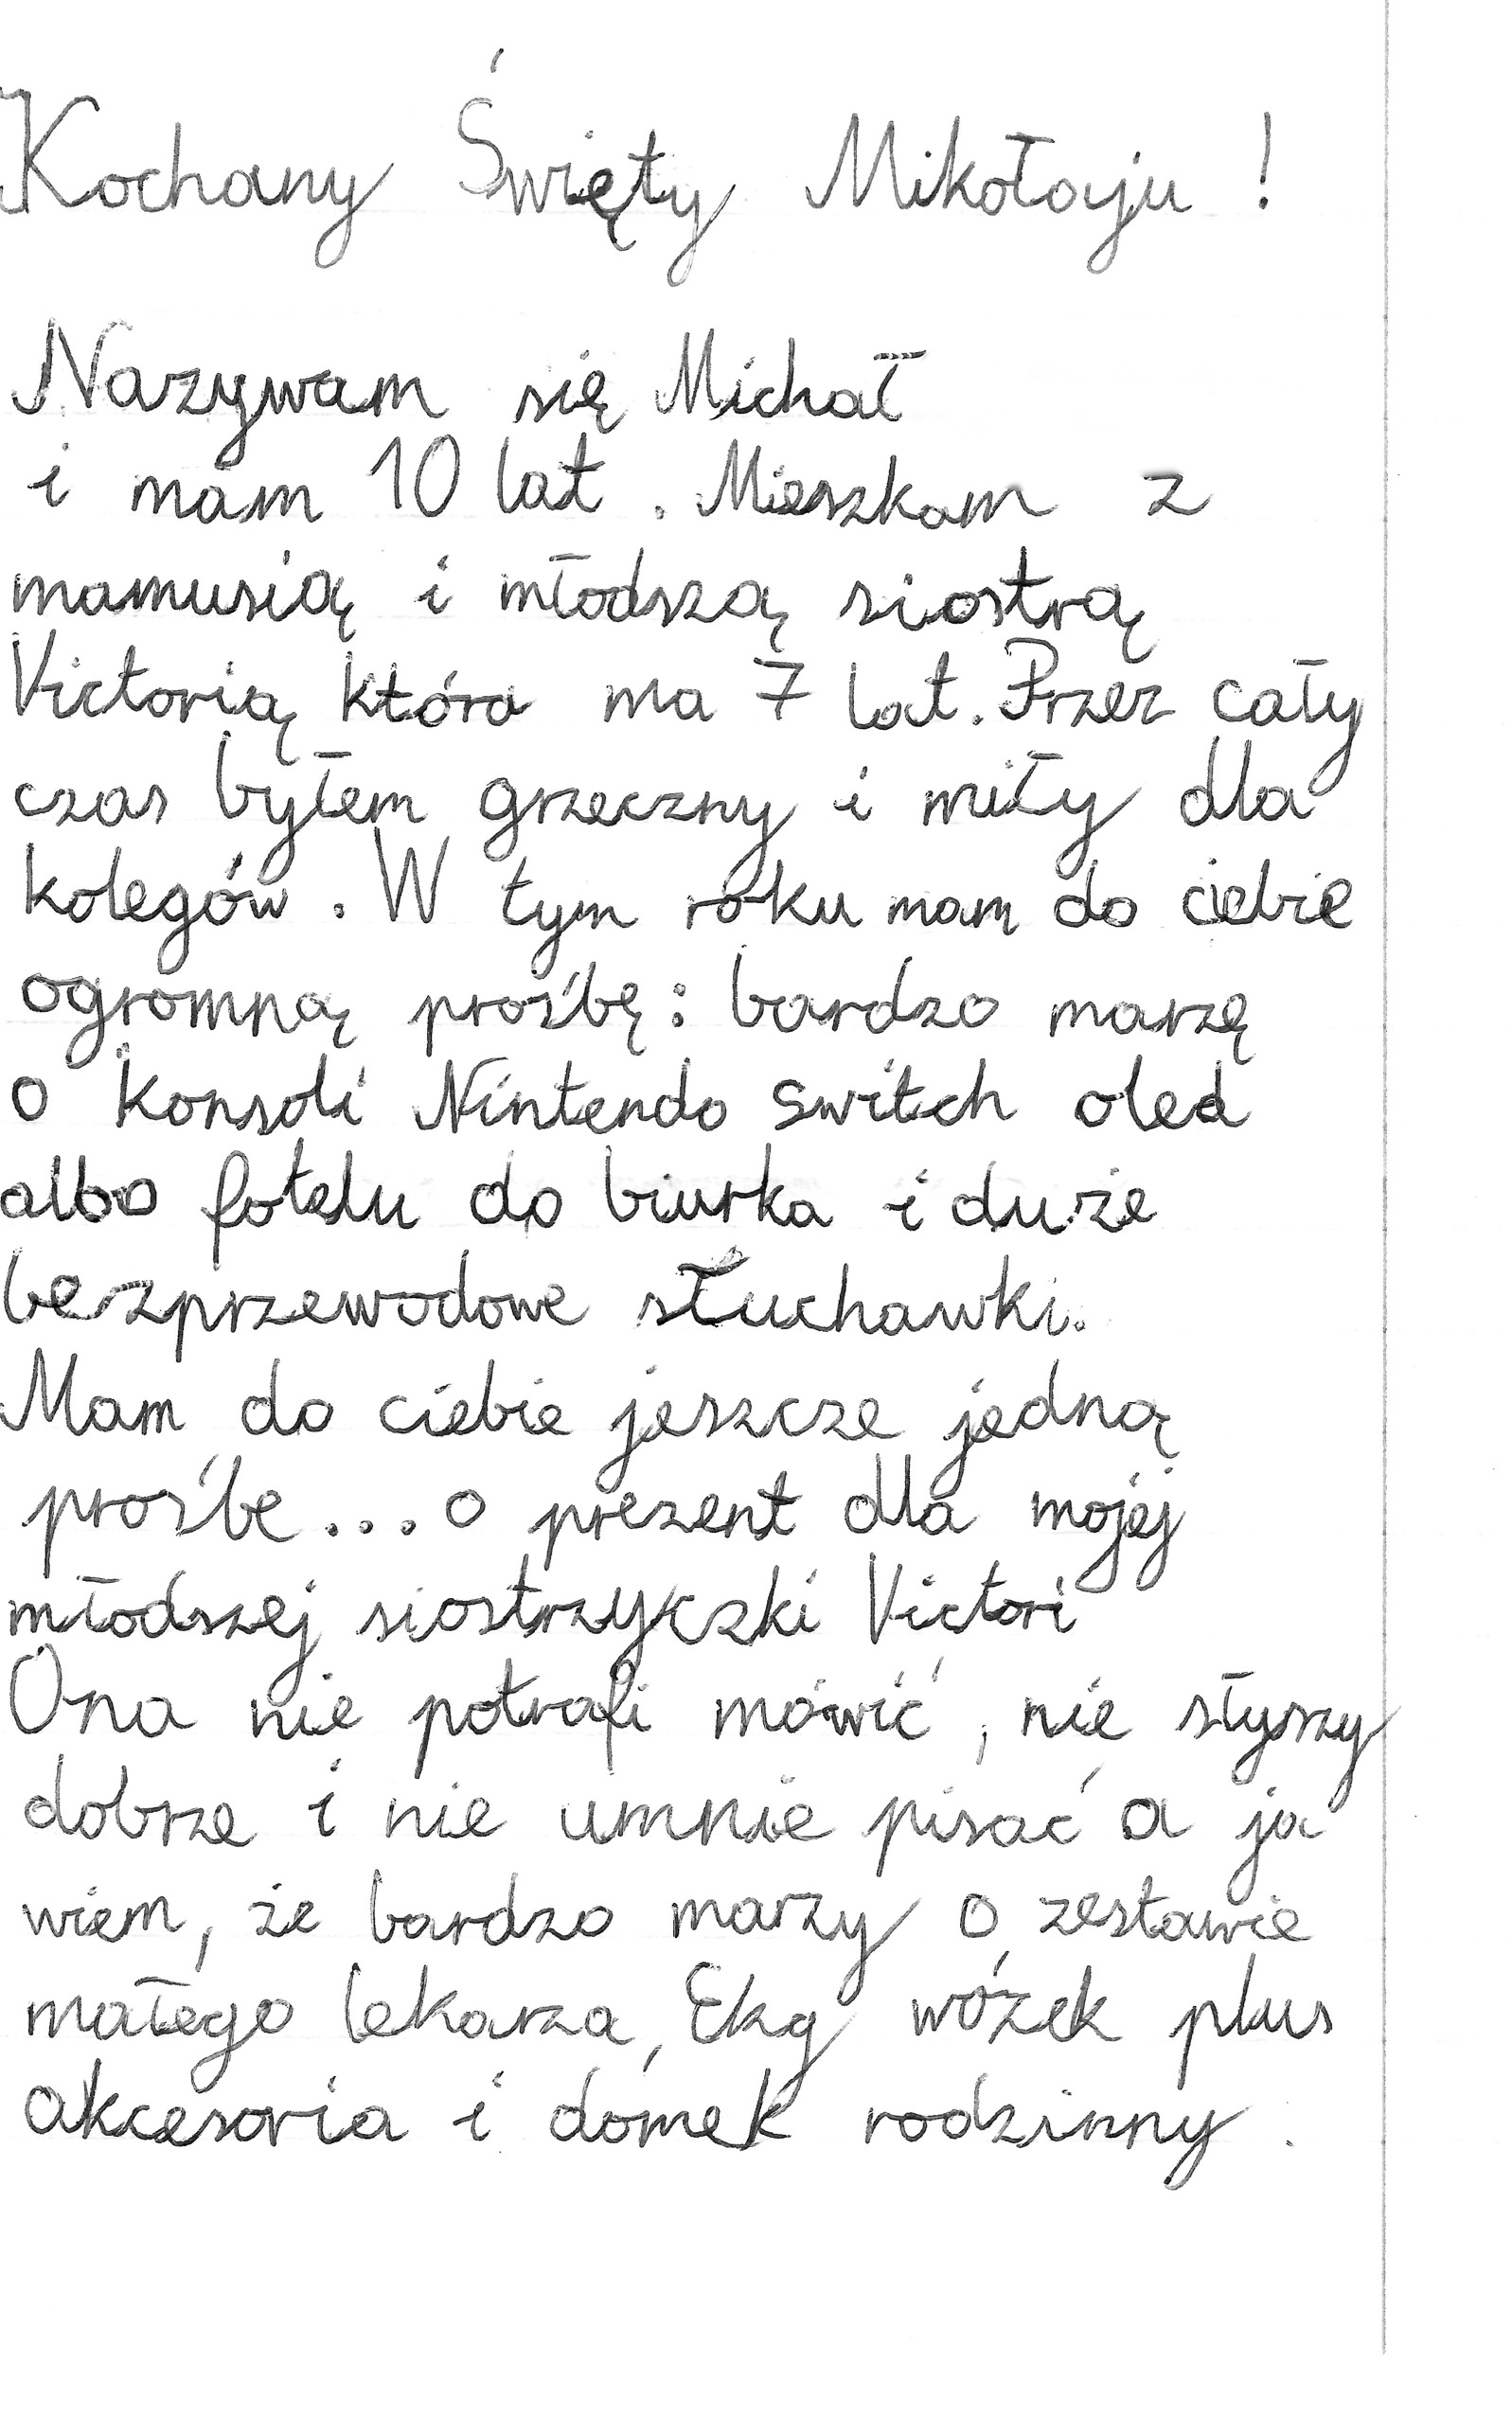 Kochany Święty Mikołaju !
Nazywam się Michał
i mam 10 lat . Mieszkam z
mamusią i młodszą siostrą
Victorią która ma 7 lat. Przez cały
czas byłem grzeczny i miły dla
kolegów . W tym roku mam do ciebie
ogromną prośbę : bardzo marzę
o konsoli Nintendo switch oled
albo fotelu do biurka i duże
bezprzewodowe słuchawki.
Mam do ciebie jeszcze jedną
prośbe ... o prezent dla mojej
młodszej siostrzyczki Victori
Ona nie potrafi mówić , nie słyszy
dobrze i nie umnie pisać a ja
wiem, że bardzo marzy o zestawie
małego lekarza, Ekg wózek plus
akcesoria i domek rodzinny .